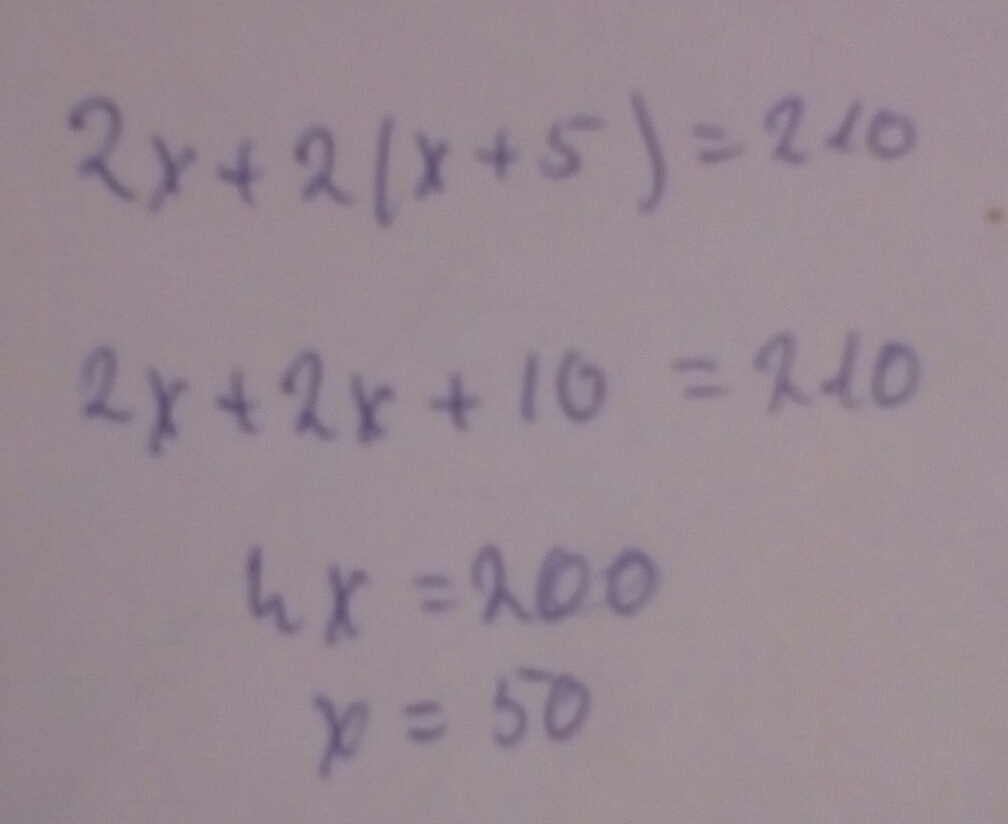 2x + 2(x + 5) = 210
2x + 2x + 10 = 210
4x = 200
x = 50